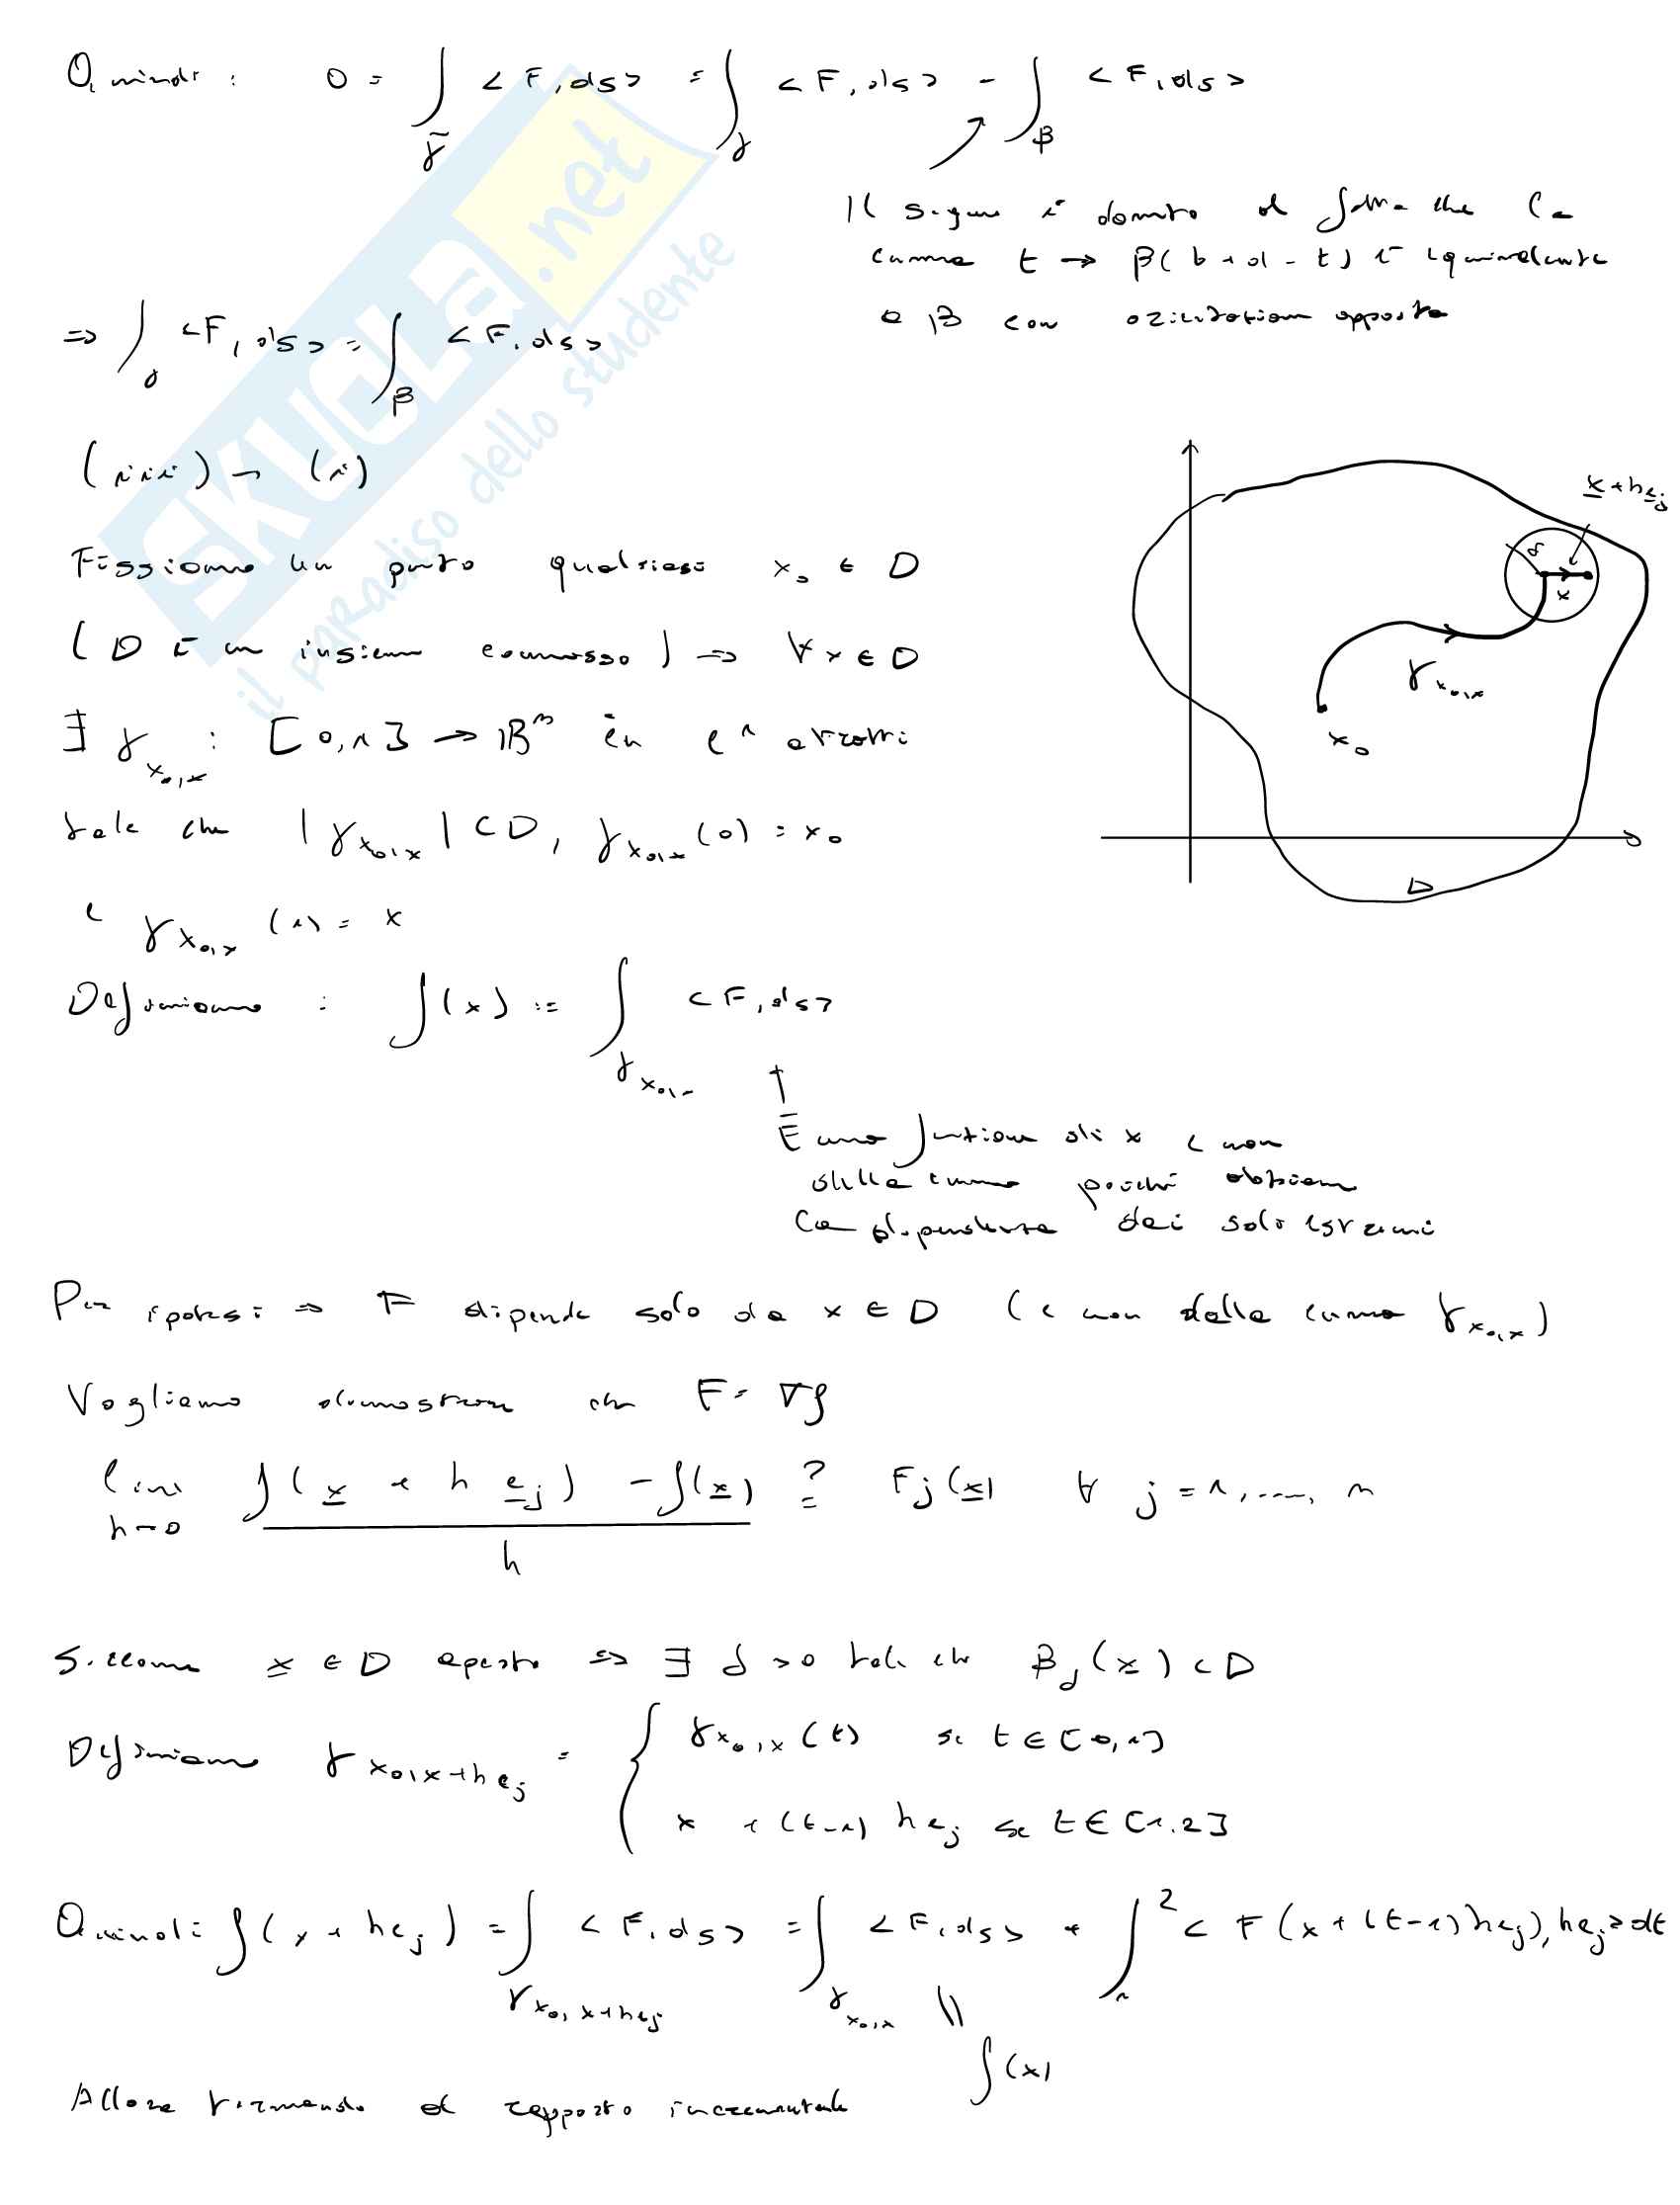 Quindi : 0 = ∫_γ̃ <F, ds> = ∫_γ <F, ds> - ∫_β <F, ds>
Il segno è dovuto al fatto che la
curva t → β(b+d-t) è equivalente
a β con orientazione opposta
=> ∫_γ <F, ds> = ∫_β <F, ds>
(iii) → (i)
Fissiamo un punto qualsiasi x₀ ∈ D
(D è un insieme connesso) => ∀ x ∈ D
∃ γ_{x₀,x} : [0,1] → ℝⁿ in C¹ a tratti
tale che |γ_{x₀,x}| ⊂ D, γ_{x₀,x}(0) = x₀
e γ_{x₀,x}(1) = x
x+he_j
δ
x
γ_{x₀,x}
x₀
D
Definiamo : f(x) := ∫_{γ_{x₀,x}} <F, ds>
↑
È una funzione di x e non
della curva poiché abbiamo
la dipendenza dei soli estremi
Per ipotesi => F dipende solo da x ∈ D (e non dalla curva γ_{x₀,x})
Vogliamo dimostrare che F = ∇f
lim_{h→0} (f(x + h e_j) - f(x)) / h ?= F_j(x) ∀ j = 1, ...., n
Siccome x ∈ D aperto => ∃ δ > 0 tale che B_δ(x) ⊂ D
Definiamo γ_{x₀,x+he_j} = { γ_{x₀,x}(t) se t ∈ [0,1]
x + (t-1) he_j se t ∈ [1,2]
Quindi f(x + he_j) = ∫_{γ_{x₀,x+he_j}} <F, ds> = ∫_{γ_{x₀,x}} <F, ds> + ∫_1^2 <F(x+(t-1)he_j), he_j> dt
||
f(x)
Allora tornando al rapporto incrementale
SKUOLA.net
il paradiso dello studente